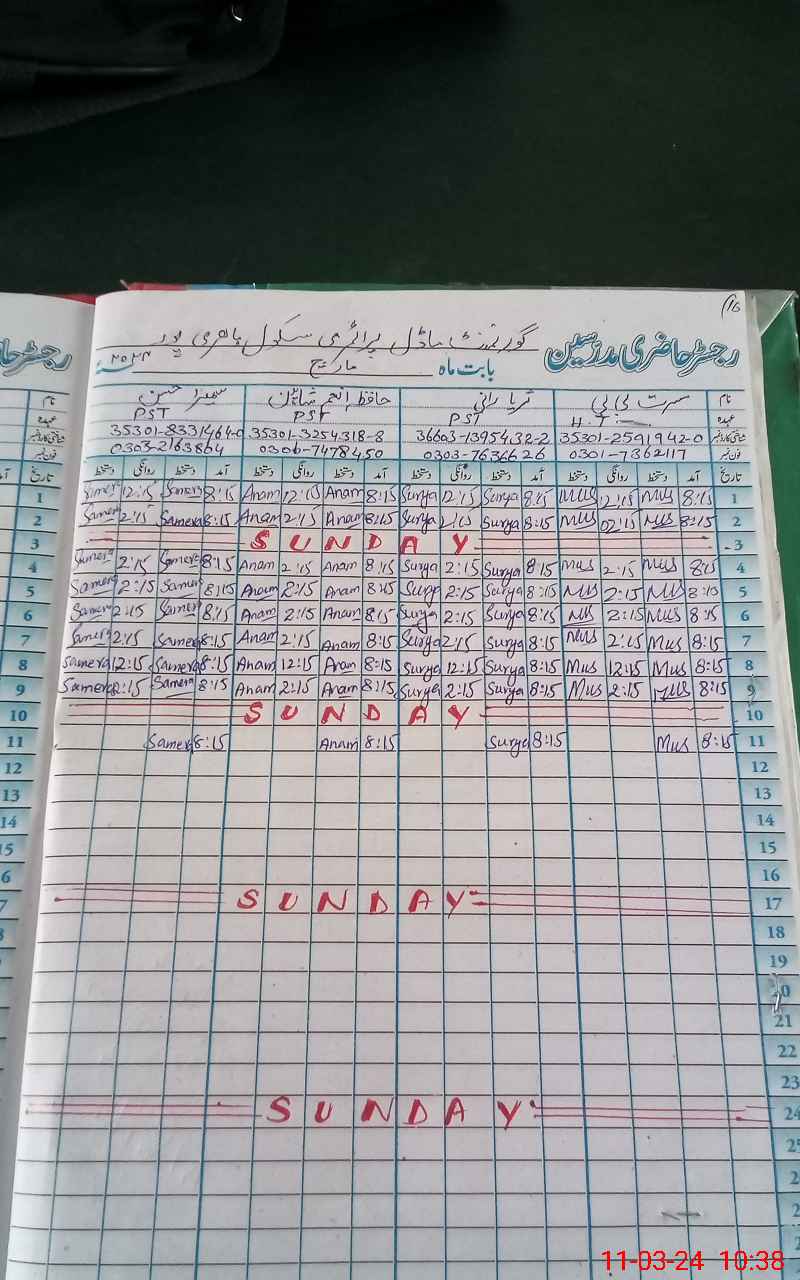 16
گورنمنٹ ماڈل پرائمری سکول
رجسٹر حاضری مدرسین
بابت ماہ مارچ ۲۰۲۴
نام مسرت بی بی ثریا رانی حافظ انجم
عہدہ H.T PST PST PST
شناختی کارڈ نمبر 35301-2591942-0 36603-1395432-2 35301-3254318-8 35301-8331464-0
فون نمبر 0301-7362117 0303-7636626 0306-7478450 0303-2163864
تاریخ آمد دستخط روانگی دستخط آمد دستخط روانگی دستخط آمد دستخط روانگی دستخط آمد دستخط روانگی دستخط
Samera 12:15 Samera 8:15 Anam 12:15 Anam 8:15 Surya 12:15 Surya 8:15 Mus 12:15 Mus 8:15 1
Samera 2:15 Samera 8:15 Anam 2:15 Anam 8:15 Surya 2:15 Surya 8:15 Mus 02:15 Mus 8:15 2
SUNDAY 3
Samera 2:15 Samera 8:15 Anam 2:15 Anam 8:15 Surya 2:15 Surya 8:15 Mus 2:15 Mus 8:15 4
Samera 2:15 Samera 8:15 Anam 2:15 Anam 8:15 2:15 Surya 8:15 Mus 2:15 Mus 8:15 5
Samera 2:15 Samera 8:15 Anam 2:15 Anam 8:15 Surya 2:15 Surya 8:15 Mus 2:15 Mus 8:15 6
Samera 2:15 Samera 8:15 Anam 2:15 Anam 8:15 Surya 2:15 Surya 8:15 Mus 2:15 Mus 8:15 7
Samera 12:15 Samera 8:15 Anam 12:15 Anam 8:15 Surya 12:15 Surya 8:15 Mus 12:15 Mus 8:15 8
Samera 2:15 Samera 8:15 Anam 2:15 Anam 8:15 Surya 2:15 Surya 8:15 Mus 2:15 Mus 8:15 9
SUNDAY 10
Samera 8:15 Anam 8:15 Surya 8:15 Mus 8:15 11
12
13
14
15
16
SUNDAY 17
18
19
20
21
22
23
SUNDAY 24
11-03-24 10:38